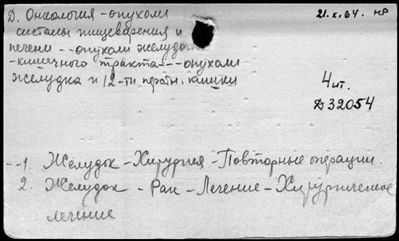 Д. Онкология - опухоли
21.X.64. нр
системы пищеварения и
печени -- опухоли желудоч
-кишечного тракта --- опухоли
желудка и 12-ти перстн. кишки
4 ит.
Д 32054
--1. Желудок - Хирургия - Повторные операции.
2. Желудок - Рак - Лечение - Хирургическое
лечение